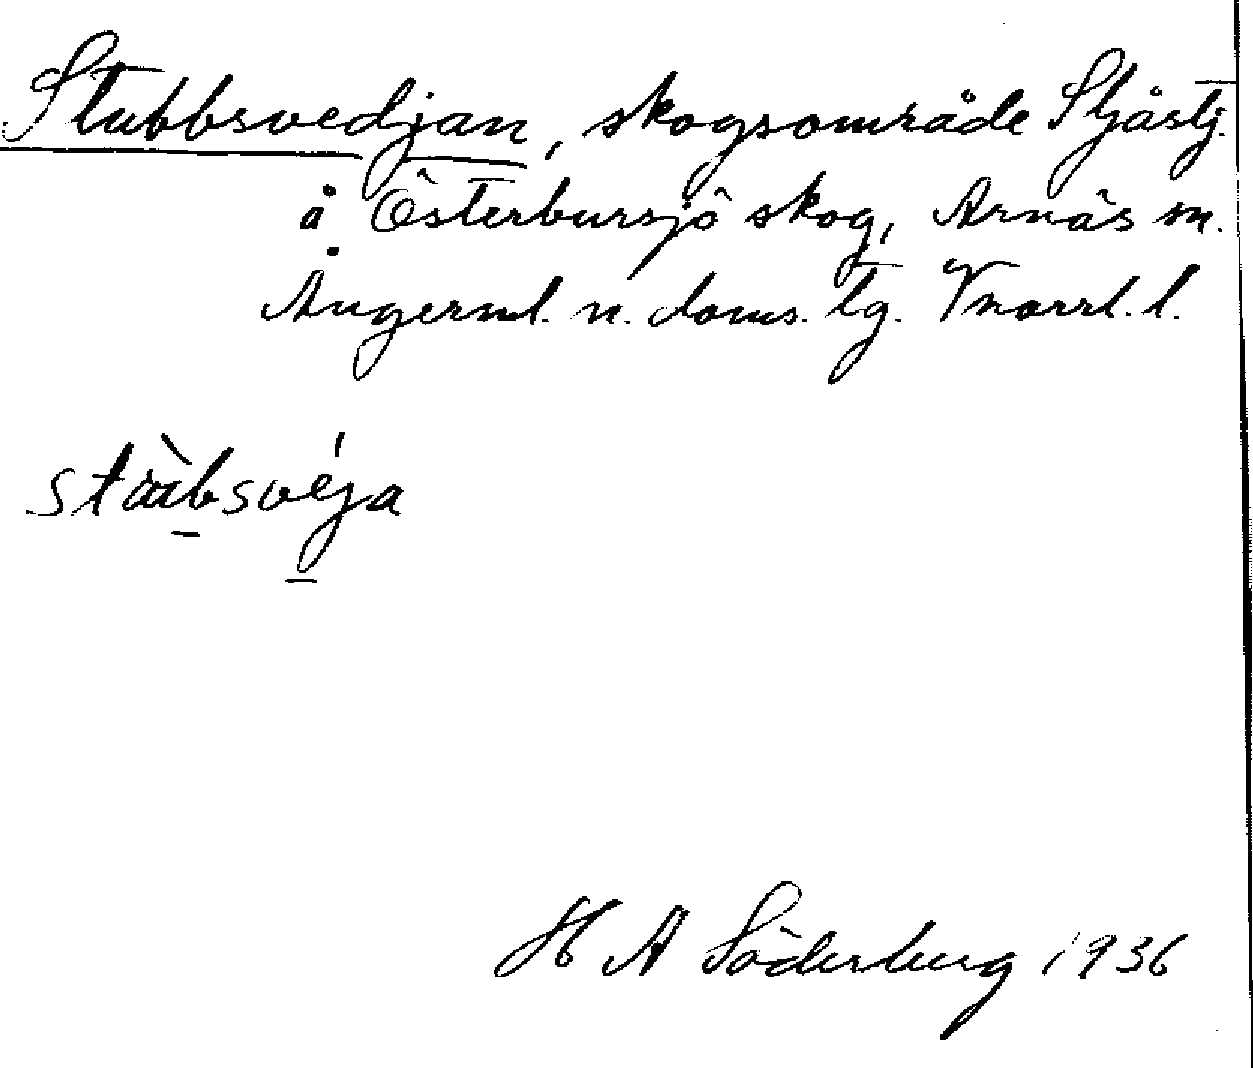 Stubbsvedjan, skogsområde
å Österbursjö skog, Arnäs sn.
Ångerml. n. doms. tg. Vnorrl. l.
H A Söderberg 1936